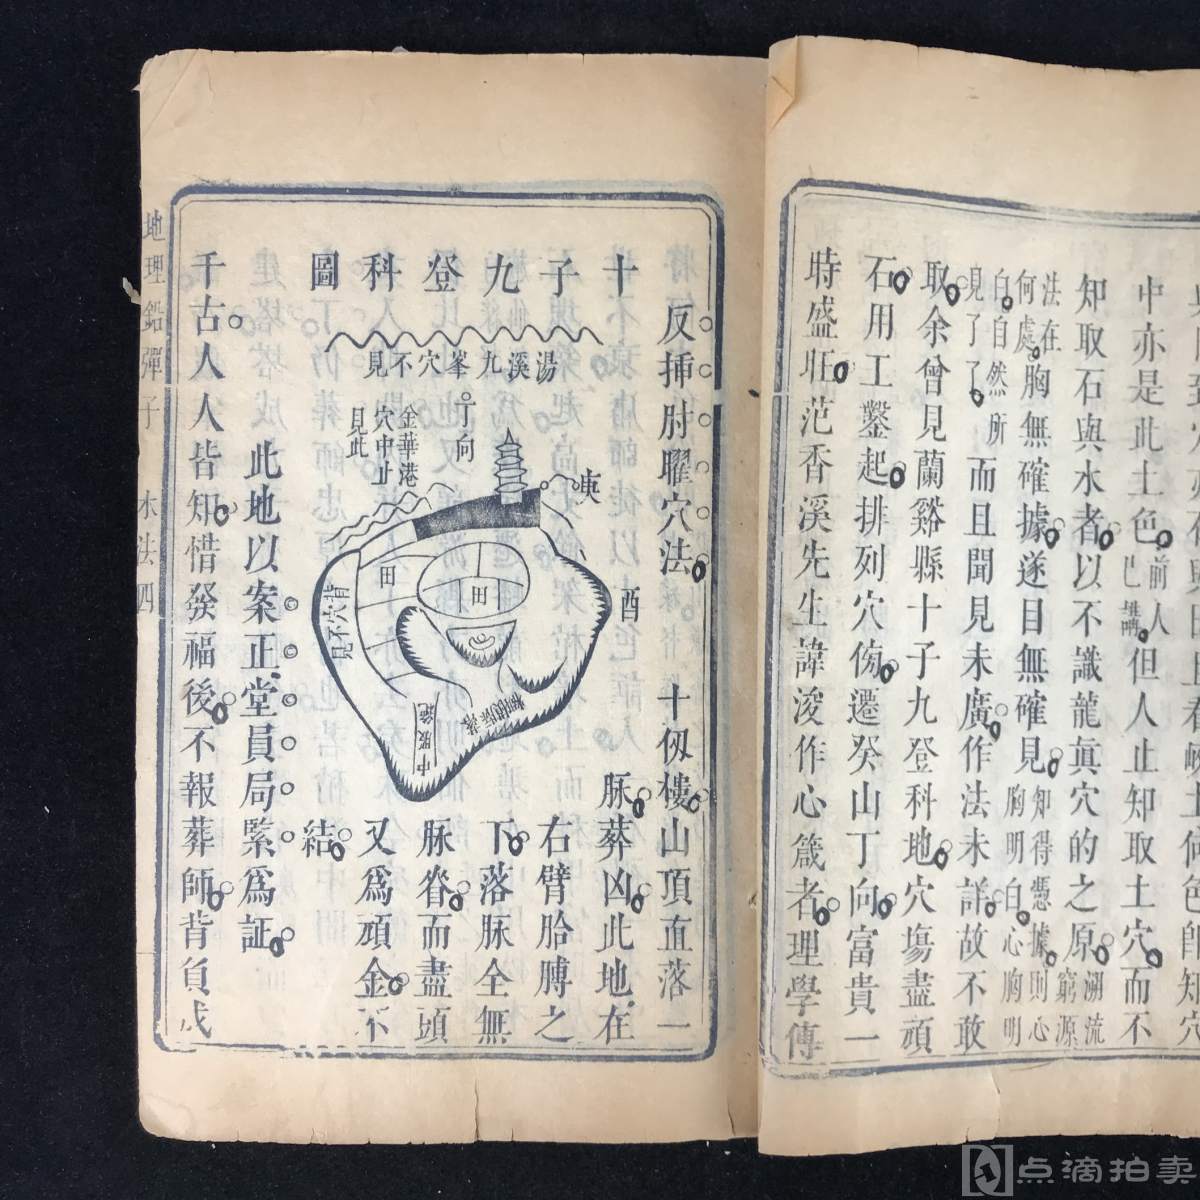 中亦是此土色前人已講但人止知取土穴而不
知取石與水者以不識龍眞穴的之原窮源溯流
法在何處胸無確據遂目無確見胸明白心胸明知得憑據則心
白自然所見了了而且聞見未廣作法未詳故不敢
取余曾見蘭谿縣十子九登科地穴塲盡頑
石用工鑿起排列穴傍遷癸山丁向富貴一
時盛旺范香溪先生諱浚作心箴者理學傳
十子九登科圖
反挿肘曜穴法
十仭樓山頂直落一
脉葬凶此地在
右臂胎膊之
下落脉全無
脉脊而盡頭
又爲頑金不
結
湯溪九峯穴不見
丁向
金華港
穴中止
見此
庚
酉
田
田
背穴不見
中股
此地以案正堂員局緊爲証
千古人人皆知惜發福後不報葬師背負戌
地理鉛彈子 水法四
点滴拍卖